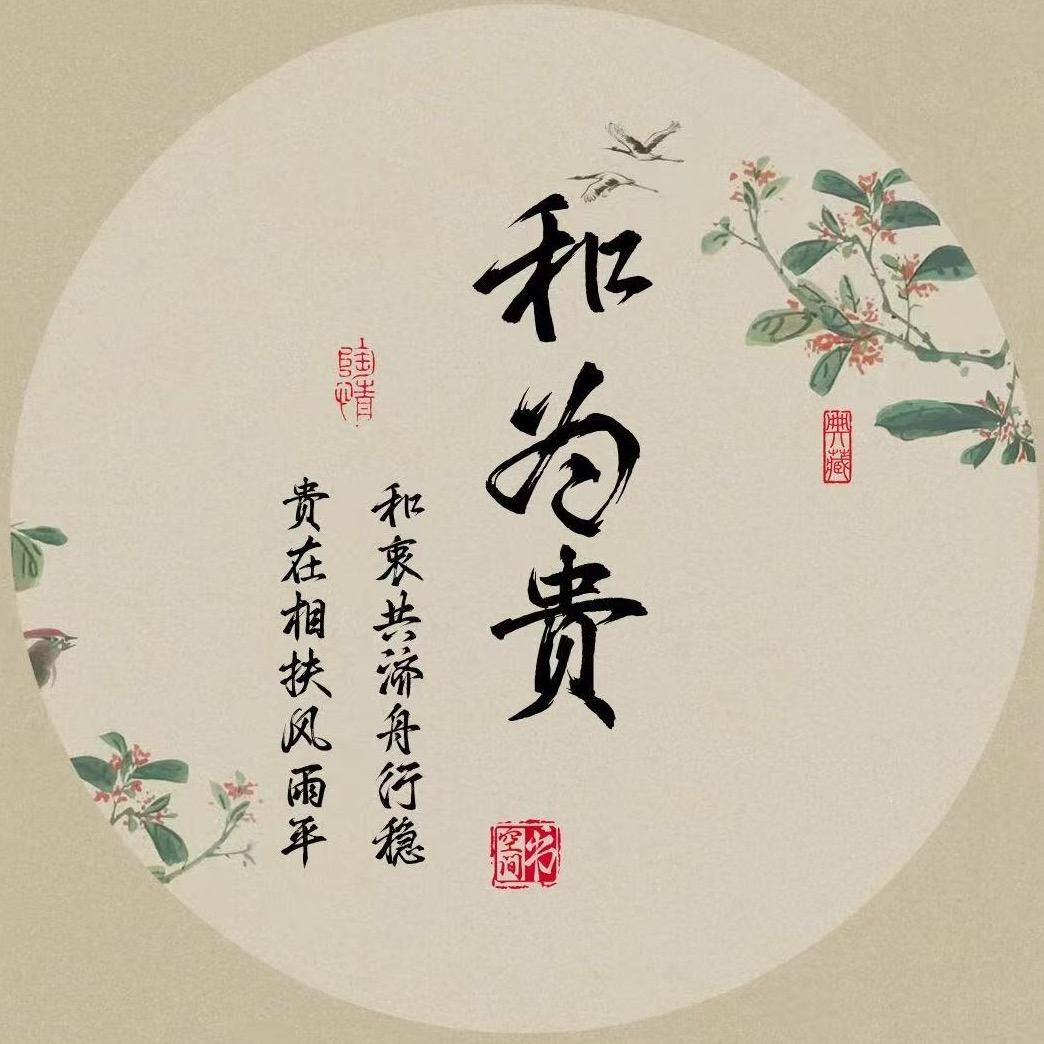 典藏
和为贵
书空间
和衷共济舟行稳
陶情
贵在相扶风雨平